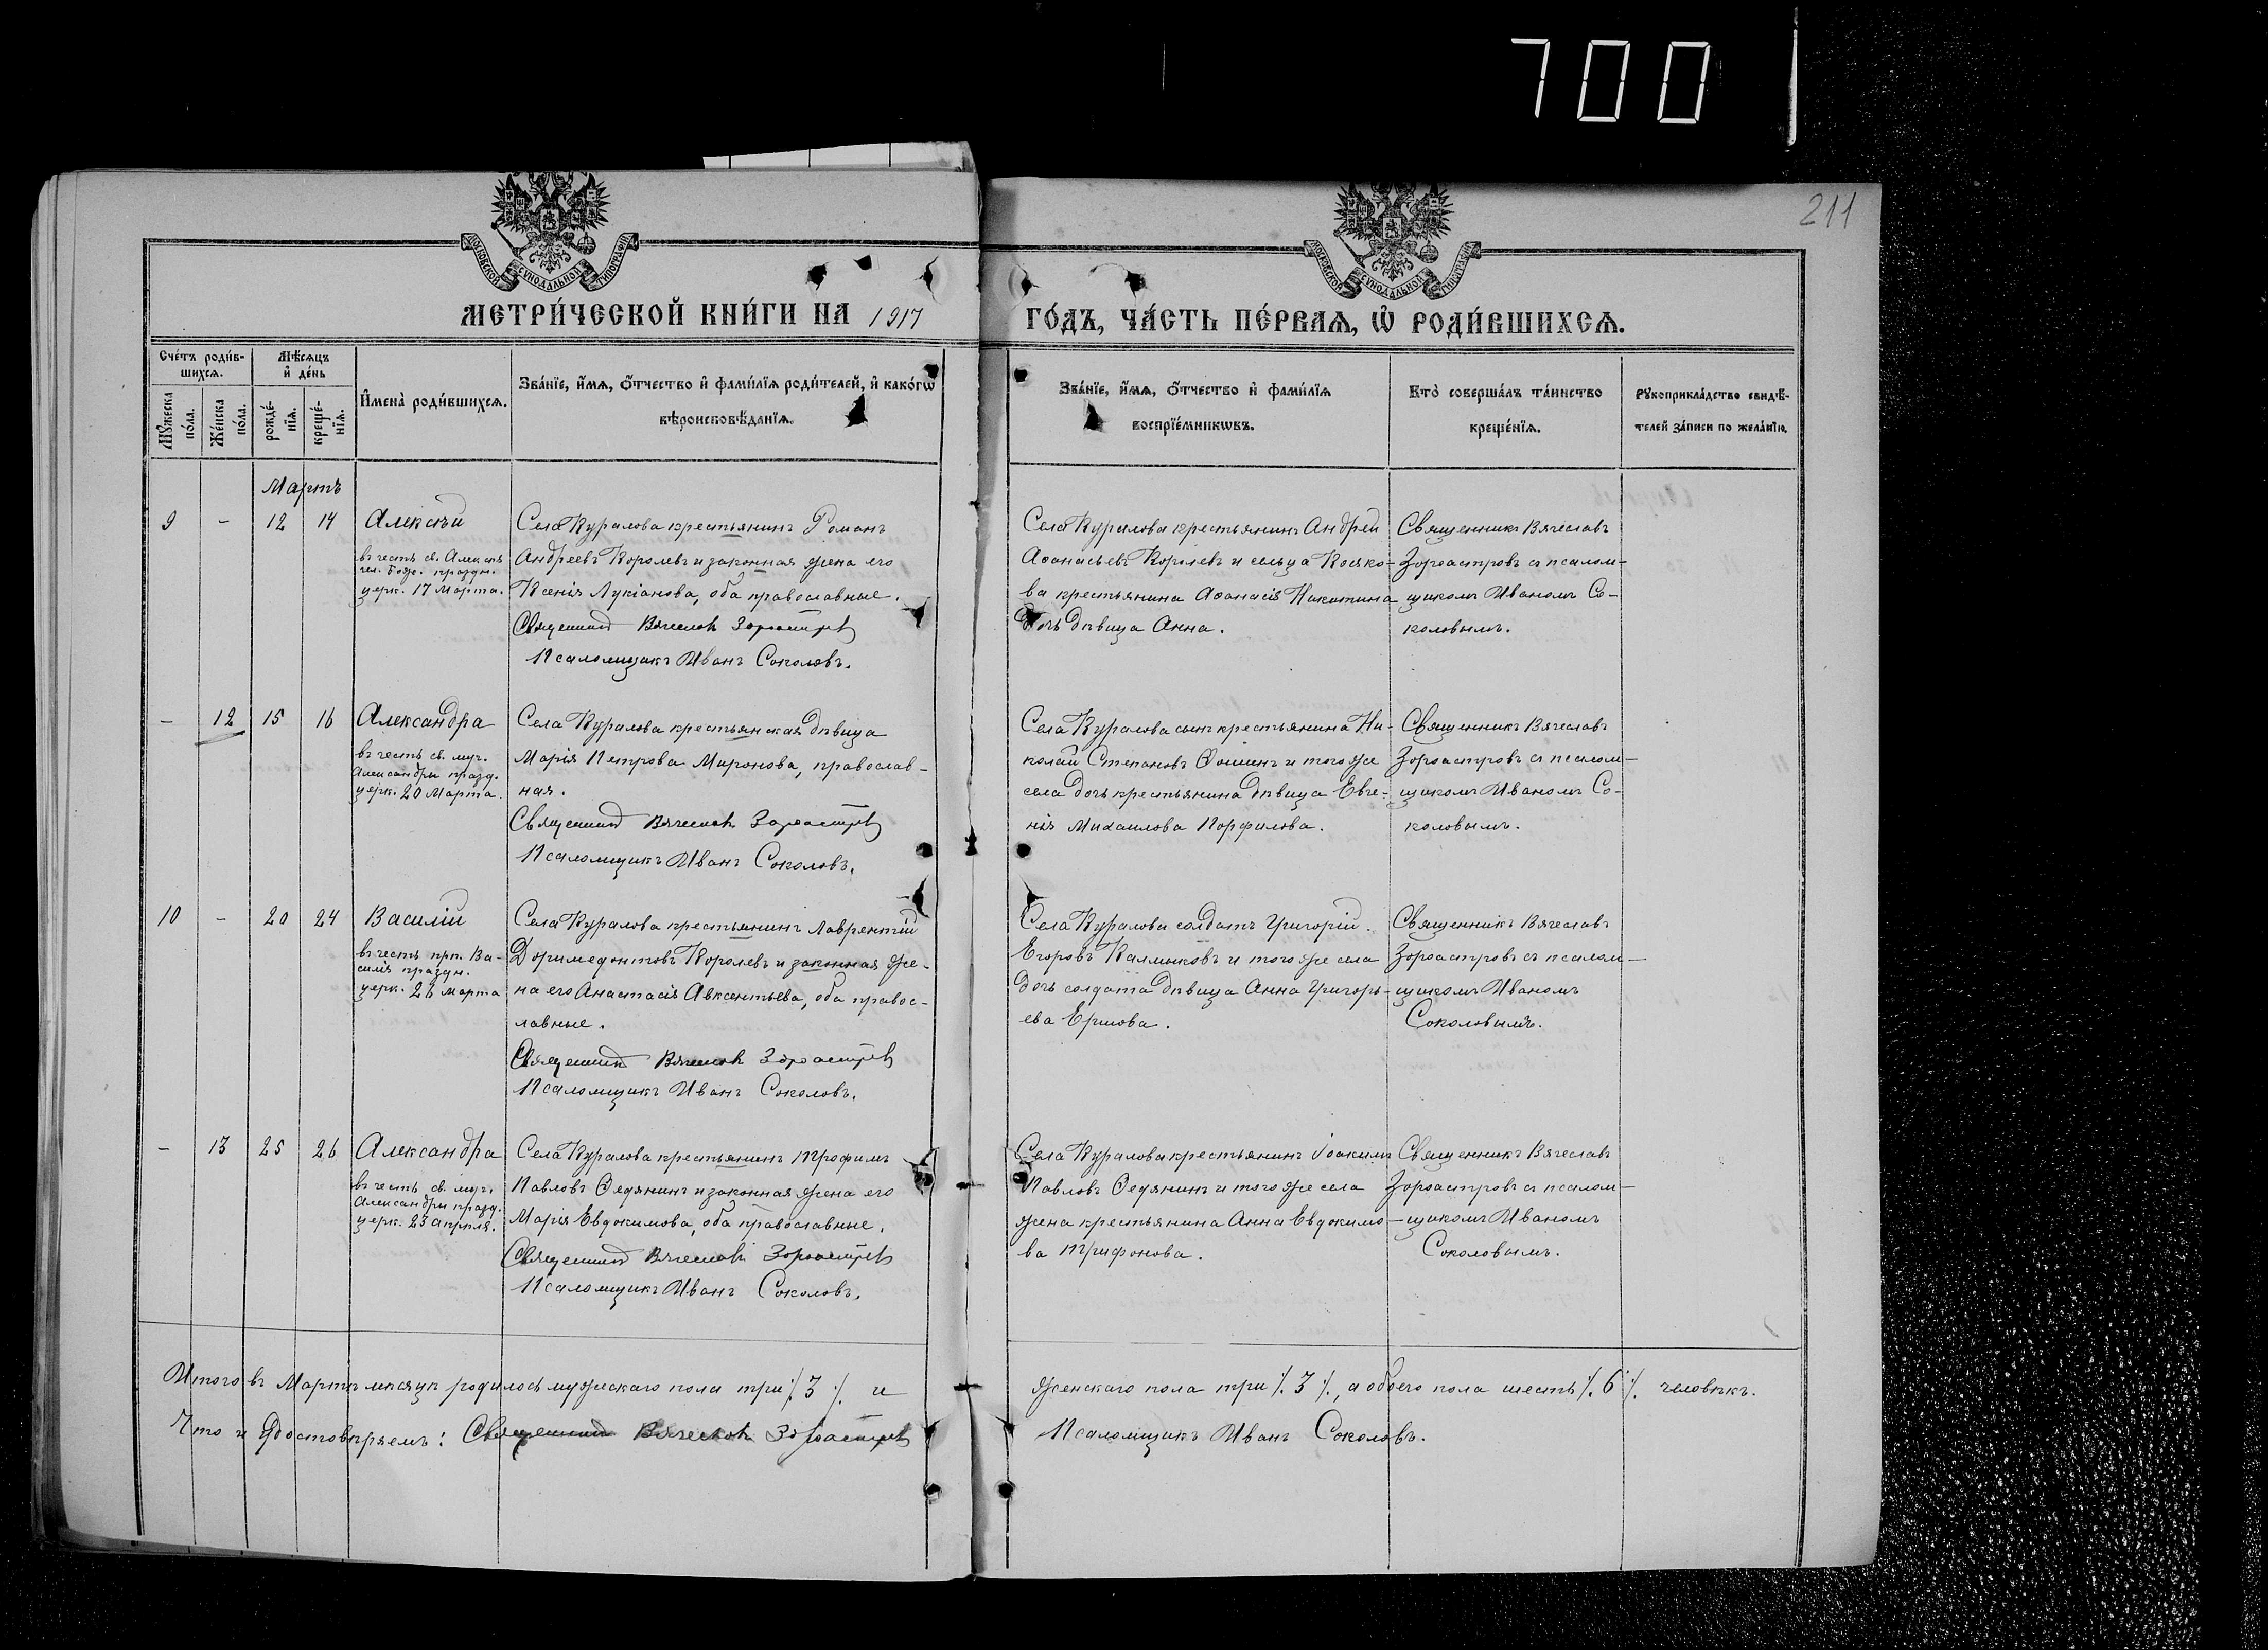 700
211
МОСКОВСКОЙ СУНОДАЛЬНОЙ ТИПОГРАФІИ
МОСКОВСКОЙ СУНОДАЛЬНОЙ ТИПОГРАФІИ
МЕТРИ́ЧЕСКОЙ КНИ́ГИ НА 1917
ГО́ДЪ, ЧА́СТЬ ПЕ́РВАЯ, Ѡ҆ РОДИ́ВШИХСЯ.
Сче́тъ роди́в-
шихсѧ.
Мѣ́сѧцъ
и҆ де́нь
Мꙋ́жеска
по́ла.
Же́нска
по́ла.
рожде́-
нїѧ.
креще́-
нїѧ.
И҆мена̀ роди́вшихсѧ.
Зва́нїе, и҆́мѧ, ѻ҆́тчество и҆ фами́лїѧ роди́телей, и҆ како́гѡ
вѣроисповѣ́данїѧ.
Зва́нїе, и҆́мѧ, ѻ҆́тчество и҆ фами́лїѧ
воспрїе́мникѡвъ.
Кто̀ соверша́лъ та́инство
креще́нїѧ.
Рꙋкоприкла́дство свидѣ́-
телей за́писи по жела́нїю.
Мартъ
9 - 12 14 Алексѣй
въ честь св. Алексѣя
чел. Бож. праздн.
церк. 17 Марта.
Села Куралова крестьянинъ Романъ
Андреевъ Королевъ и законная жена его
Ксенія Лукіанова, оба православные.
Священникъ Вячеславъ Зороастровъ
Псаломщикъ Иванъ Соколовъ.
Села Куралова крестьянинъ Андрей
Аѳанасьевъ Королевъ и сельца Кояко-
ва крестьянина Аѳанасія Никитина
дочь дѣвица Анна.
Священникъ Вячеславъ
Зороастровъ съ псалом-
щикомъ Иваномъ Со-
коловымъ.
- 12 15 16 Александра
въ честь св. муч.
Александры празд.
церк. 20 Марта.
Села Куралова крестьянская дѣвица
Марія Петрова Миронова, православ-
ная.
Священникъ Вячеславъ Зороастровъ
Псаломщикъ Иванъ Соколовъ.
Села Куралова сынъ крестьянина Ни-
колай Степановъ Ѳошинъ и того же
села дочь крестьянина дѣвица Евге-
нія Михаилова Порфилова.
Священникъ Вячеславъ
Зороастровъ съ псалом-
щикомъ Иваномъ Со-
коловымъ.
10 - 20 24 Василій
въ честь прп. Ва-
силія праздн.
церк. 26 марта
Села Куралова крестьянинъ Лаврентій
Доримедонтовъ Королевъ и законная же-
на его Анастасія Авксентьева, оба правос-
лавные.
Священникъ Вячеславъ Зороастровъ
Псаломщикъ Иванъ Соколовъ.
Села Куралова солдатъ Григорій
Егоровъ Калмыковъ и того же села
дочь солдата дѣвица Анна Григорь-
ева Ершова.
Священникъ Вячеславъ
Зороастровъ съ псалом-
щикомъ Иваномъ
Соколовымъ.
- 13 25 26 Александра
въ честь св. муч.
Александры празд.
церк. 23 апрѣля.
Села Куралова крестьянинъ Трофимъ
Павловъ Ѳедянинъ и законная жена его
Марія Евдокимова, оба православные.
Священникъ Вячеславъ Зороастровъ
Псаломщикъ Иванъ Соколовъ.
Села Куралова крестьянинъ Іоакимъ
Павловъ Ѳедянинъ и того же села
жена крестьянина Анна Евдокимо-
ва Трифонова.
Священникъ Вячеславъ
Зороастровъ съ псалом-
щикомъ Иваномъ
Соколовымъ.
Итого въ Мартѣ мѣсяцѣ родилось мужескаго пола три ⁒ 3 ⁒ и
женскаго пола три ⁒ 3 ⁒, а обоего пола шесть ⁒ 6 ⁒ человѣкъ.
Что и удостовѣряемъ: Священникъ Вячеславъ Зороастровъ
Псаломщикъ Иванъ Соколовъ.